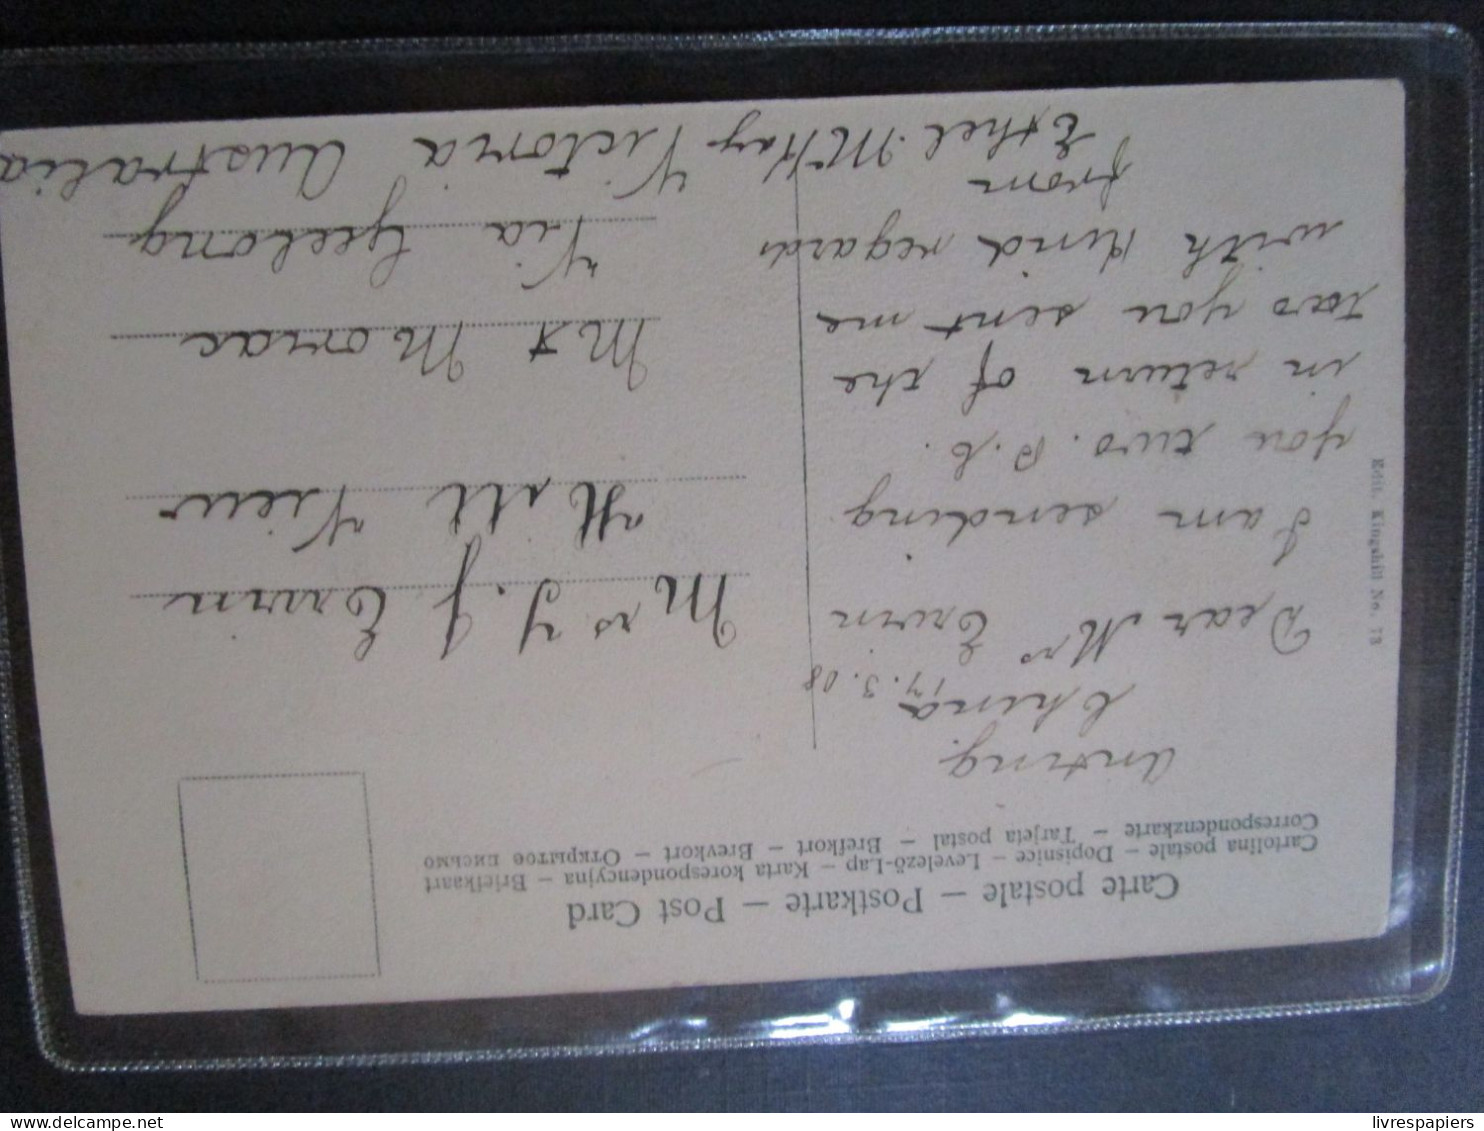 Carte postale – Postkarte – Post Card
Cartolina postale – Dopisnice – Levelező-Lap – Karta korespondencyjna – Briefkaart
Correspondenzkarte – Tarjeta postal – Brefkort – Brevkort – Открытое письмо
Edit. Kingshill No. 73
Anting
China 17.3.08
Dear Mr Ervin
I am sending
you two. P.C.
in return of the
two you sent me
with kind regards
from
Ethel McHay
Mrs J. Ervin
Hill View
Mt Moriac
Via Geelong
Victoria Australia
livrespapiers